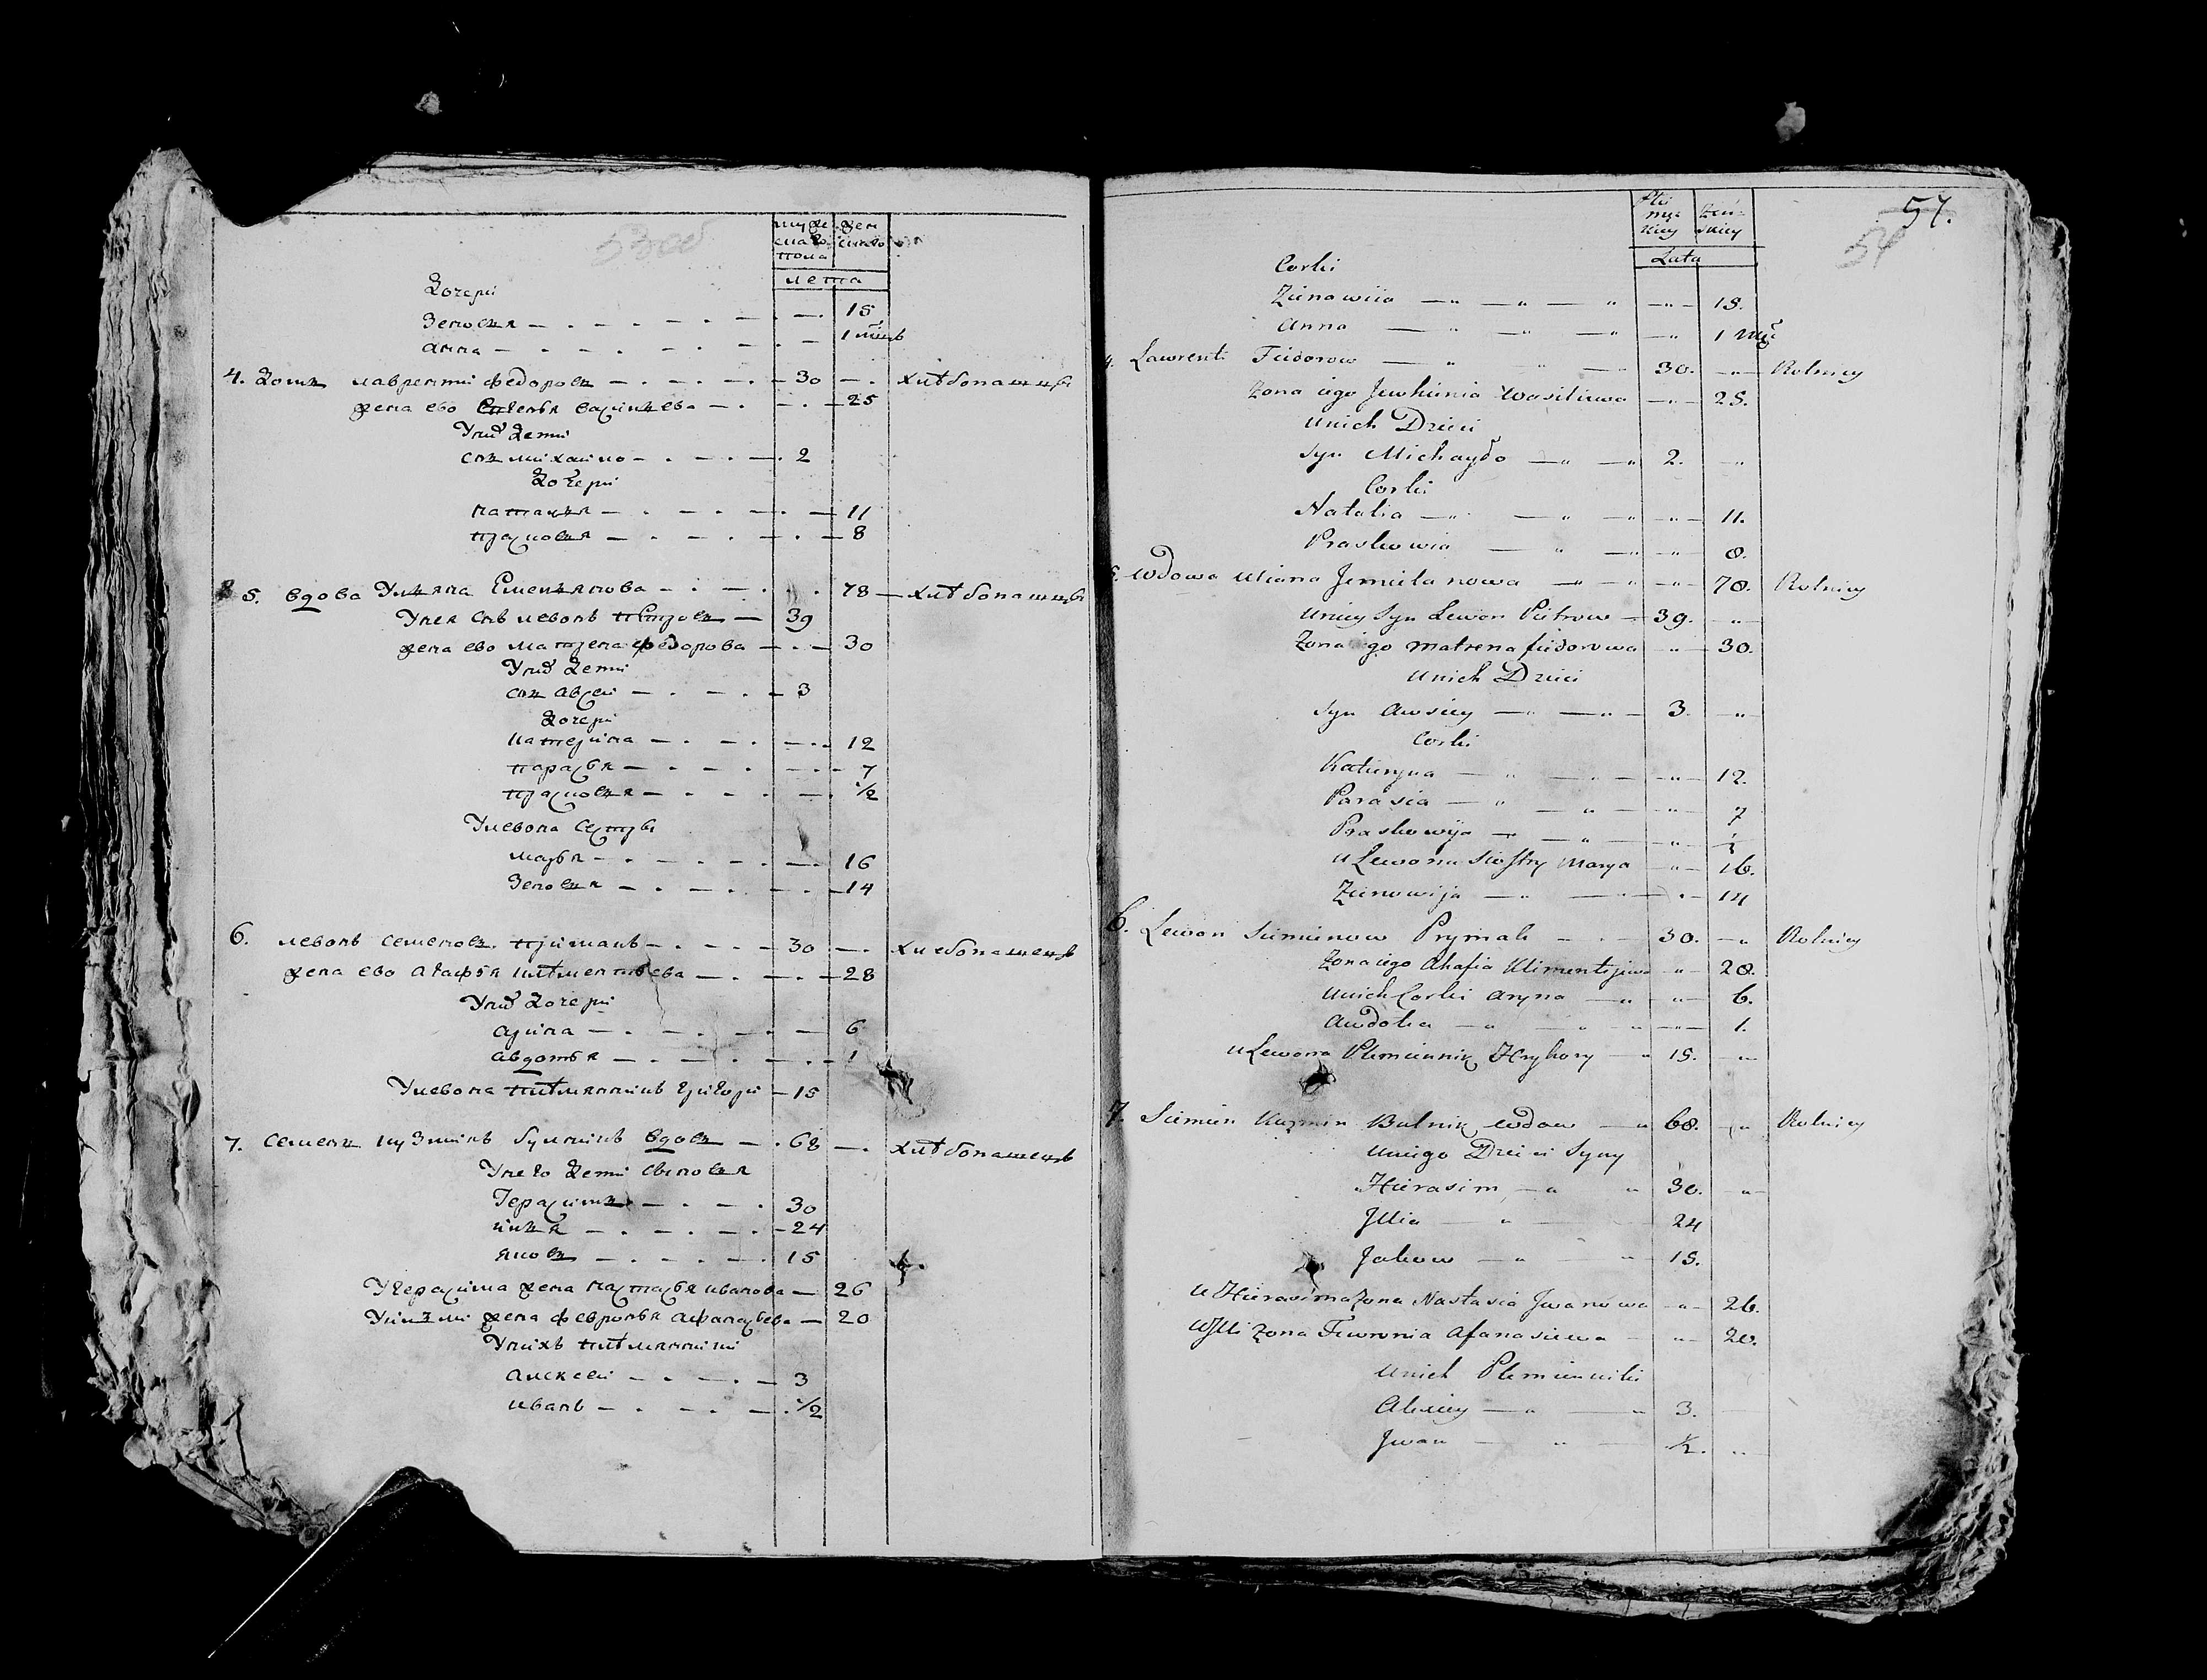 53 об
муже
скаго
пола
жен
скаго
лета
Дочери
Зеновъя 15
анна 1 м͠цъ
4. Домъ лаврентий федоровъ 30 хлѣбопашцы
жена ево Евгенъя василъева 25
Уних дети
сынъ михаило 2
Дочери
наталъя 11
прасковъя 8
5. вдова Улъяна Емелъянова 78 хлѣбопашцы
Унея сынъ левонъ петровъ 39
жена ево матрена федорова 30
Уних дети
сынъ авсеи 3
дочери
катерина 12
парасья 7
прасковъя 1/2
Улевона сестры
марья 16
Зеновъя 14
6. левонъ семеновъ примакъ 30 хлебопашецъ
жена ево агафья клѣментьева 28
Уних дочери
арина 6
авдотья 1
Улевона плѣмянникъ григори 15
7. семенъ кузминъ булникъ вдовъ 68 хлѣбопашецъ
Унего дети сыновъя
Герасимъ 30
илъя 24
яковъ 15
Угерасима жена настасья иванова 26
Уилъи жена февронья афанасьева 20
Унихъ плѣмянники
алексеи 3
иванъ 1/2
57.
54
Płci
męz
kiey
Żeń
skiey
Lata
Corki
Zienowiia 15.
Anna 1 mc̃
4. Lawrenti Fiedorow 30. Rolnicy
Żona iego Jewhienia Wasiliewa 25.
Unich Dzieci
Syn Michayło 2.
Corki
Natalia 11.
Praskowia 8.
5. Wdowa Uliana Jemielanowa 78. Rolnicy
Uniey Syn Lewon Pietrow 39.
Żona iego Matrena fiedorowa 30.
Unich Dzieci
Syn Awsiey 3.
Corki
Katieryna 12.
Parasia 7
Praskowija ½
U Lewona Siostry Marya 16.
Zienowija 14
6. Lewon Siemienow Prymak 30. Rolnicy
Żona iego Ahafia Klimentijewa 28.
Unich Corki Aryna 6.
Awdotia 1.
U Lewona Plemiennik Hryhory 15.
7. Siemien Kuzmin Bulnik wdow 68. Rolnicy
Uniego Dzieci Syny
Hierasim 30.
Jllia 24
Jakow 15.
U Hierasima Żona Nastasia Jwanowa 26.
U Jlli Żona Fiewronia Afanasiewa 20.
Unich Plemienniki
Alexiey 3.
Jwan ½.